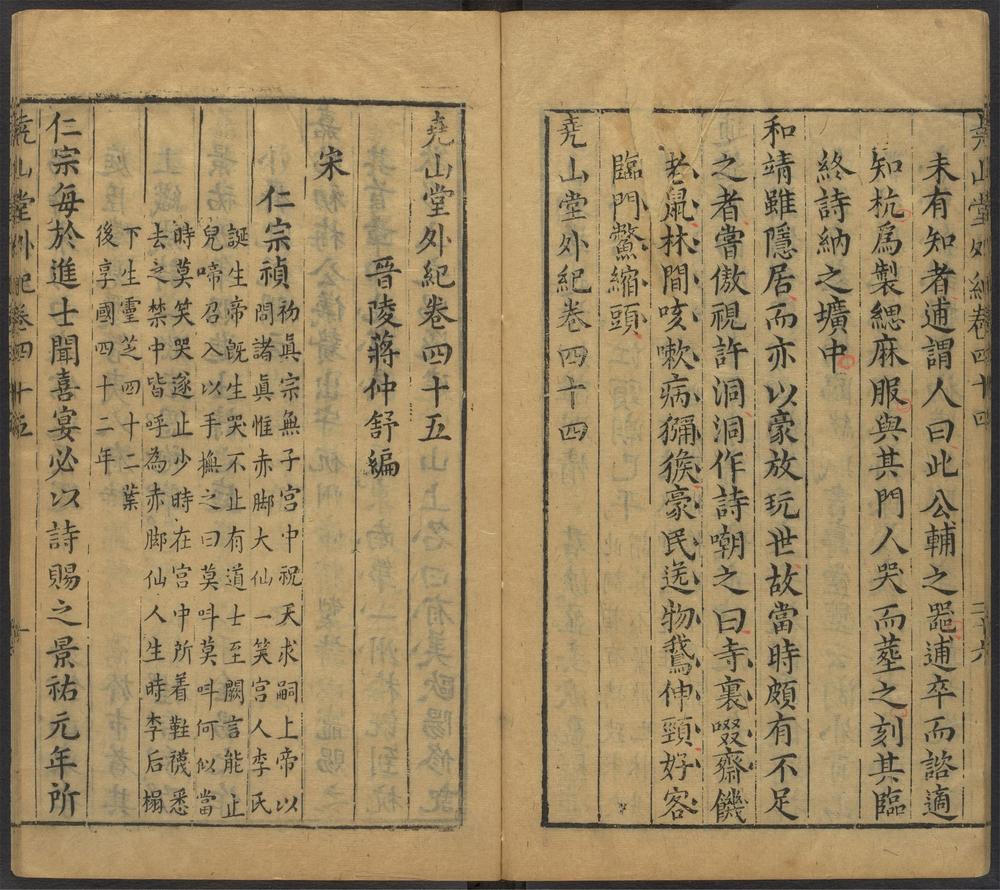 堯山堂外紀卷四十四 三十六
未有知者逋謂人曰此公輔之噐逋卒而諮適
知杭爲製緦麻服與其門人哭而塟之刻其臨
終詩納之壙中
和靖雖隱居而亦以豪放玩世故當時頗有不足
之者嘗傲視許洞洞作詩嘲之曰寺裏啜齋饑
老鼠林間咳嗽病獼猴豪民送物鵞伸頸好客
臨門鱉縮頭
堯山堂外紀卷四十四
堯山堂外紀卷四十五
晉陵蔣仲舒編
宋
仁宗禎
初眞宗無子宫中祝天求嗣上帝以
問諸眞惟赤脚大仙一笑宫人李氏
誕生帝旣生哭不止有道士至闕言能止
兒啼召入以手撫之曰莫呌莫呌何似當
時莫笑哭遂止少時在宫中所着鞋襪悉
去之禁中皆呼為赤脚仙人生時李后榻
下生靈芝四十二葉
後享國四十二年
仁宗每於進士聞喜宴必以詩賜之景祐元年所
堯山堂外紀卷四十五 一